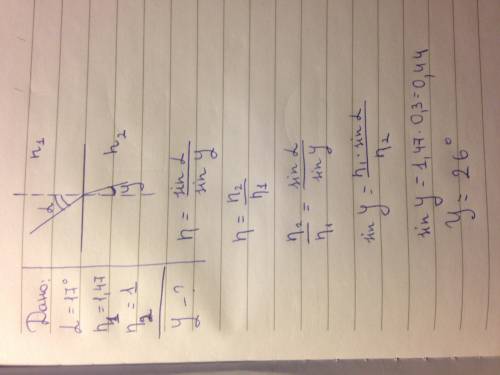 Дано:
α = 17°
n₁ = 1,47
n₂ = 1
γ - ?
α
γ
n₁
n₂
n = sin α / sin γ
n = n₂ / n₁
n₂ / n₁ = sin α / sin γ
sin γ = n₁ · sin α / n₂
sin γ = 1,47 · 0,3 = 0,44
γ = 26°